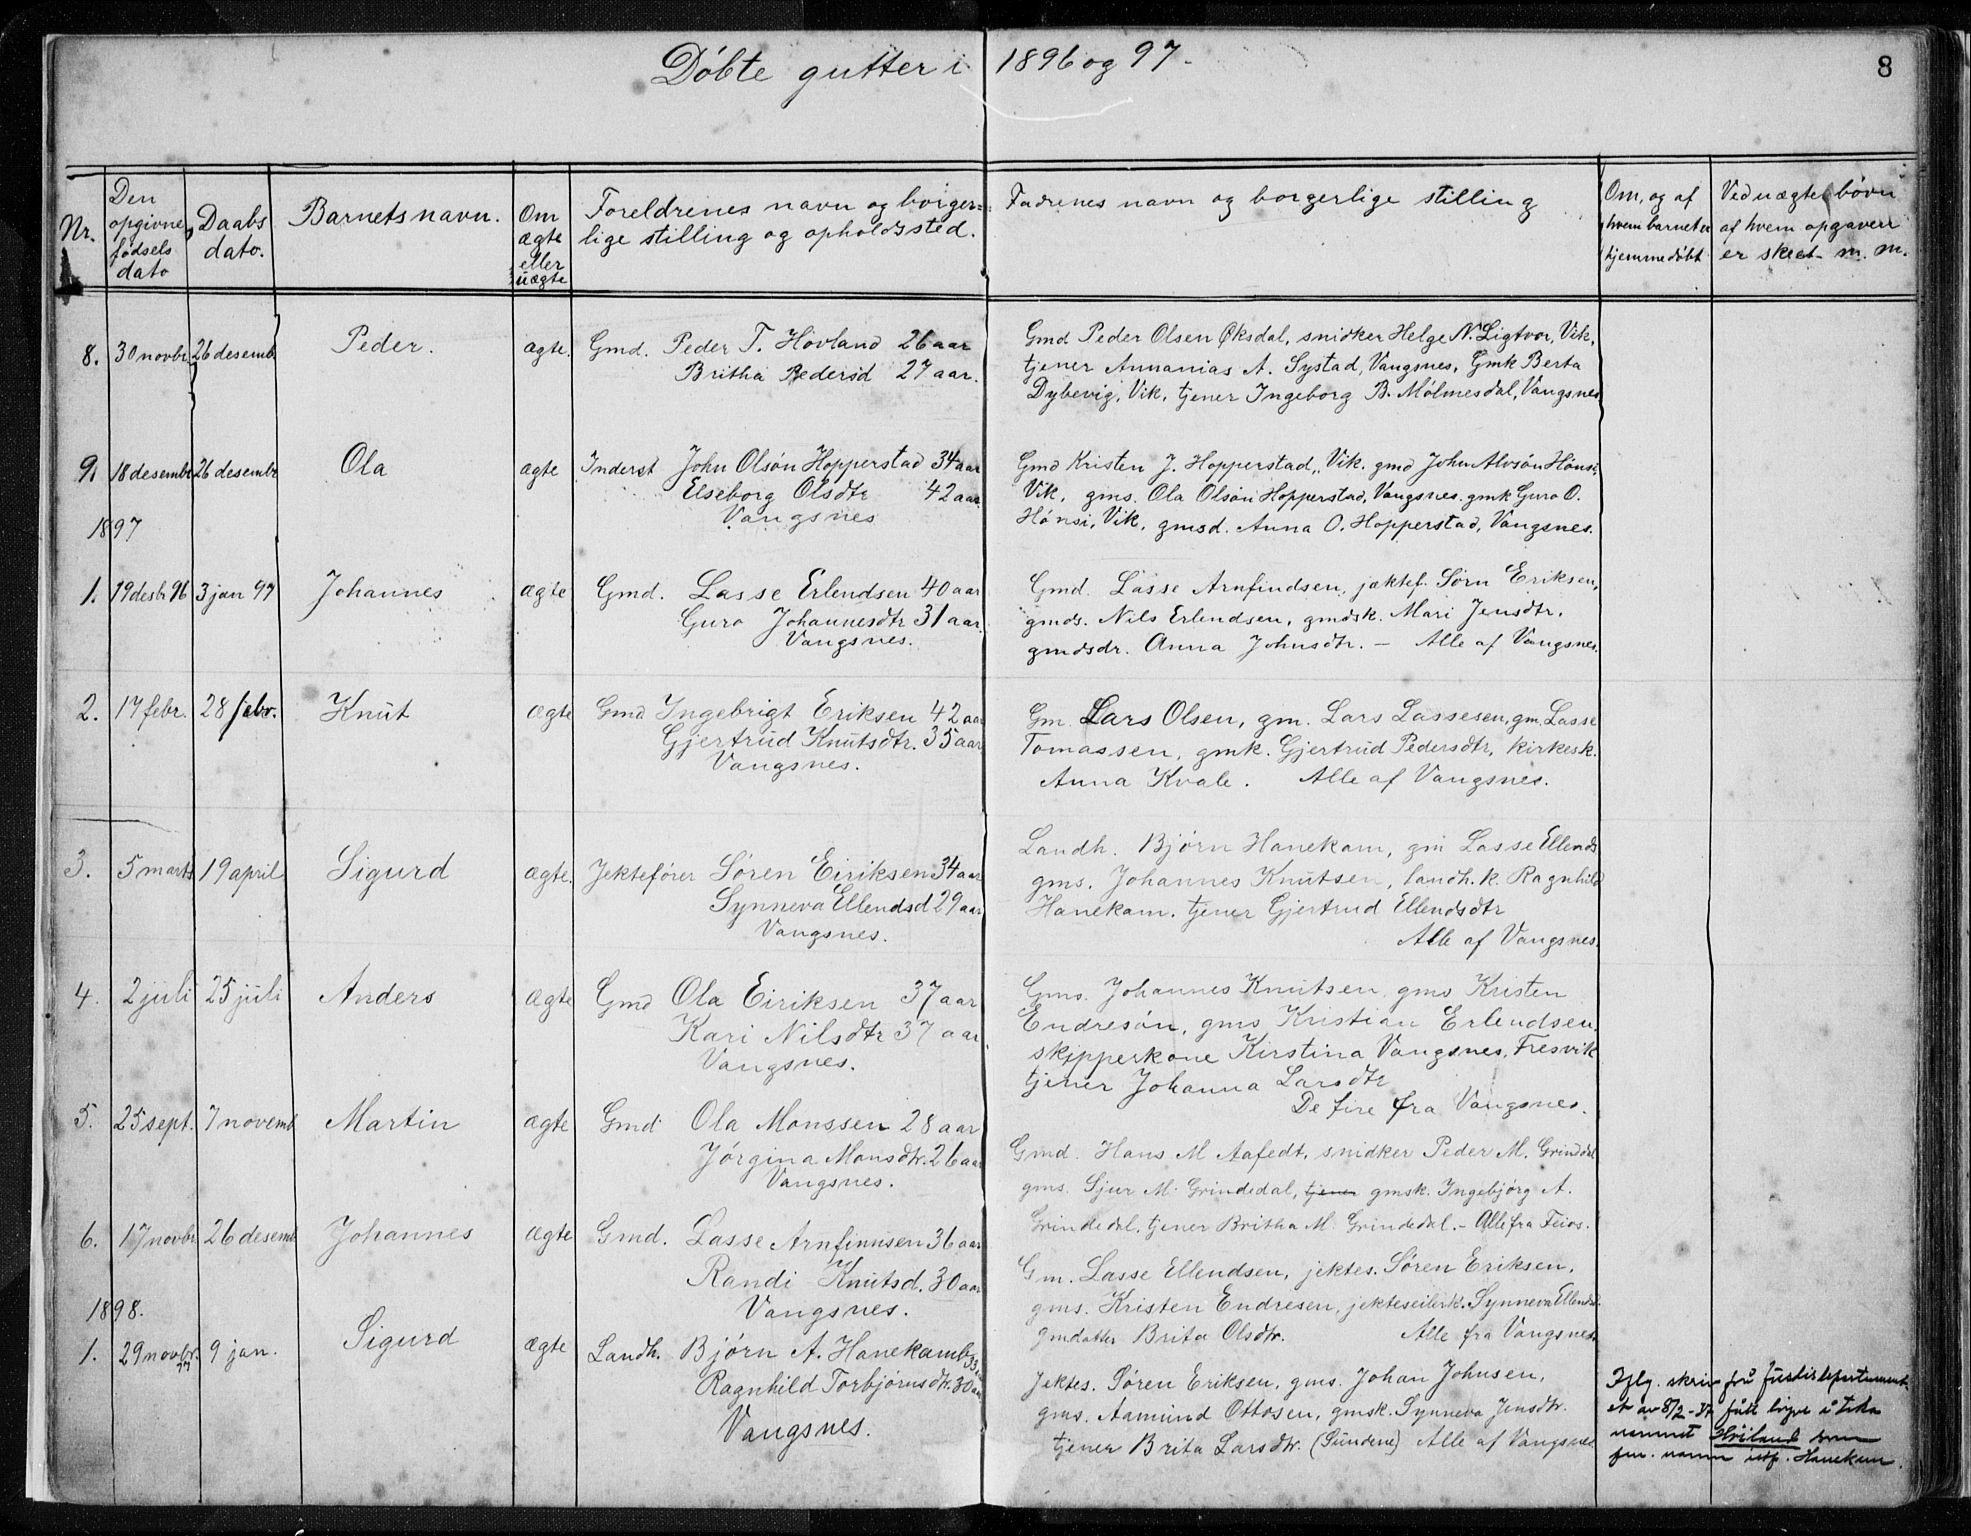 Døbte gutter i 1896 og 97.
8
Nr.
Den opgivne fødsels dato
Daabs dato.
Barnets navn.
Om ægte eller uægte
Foreldrenes navn og borger=
lige stilling og opholdssted.
Fadrenes navn og borgerlige stilling
Om, og af
hvem barnet er
hjemmedøbt
Ved uægte børn
af hvem opgaven
er skeet m. m.
8. 30 novbr 26 desemb. Peder. ægte. Gmd. Peder T. Hovland 26 aar
Britha Pedersd 27 aar.
Gmd Peder Olsen Øksdal, snidker Helge N. Ligtvor, Vik,
tjener Annanias A. Systad, Vangsnes, Gmk Berta
Dybevig, Vik, tjener Ingeborg B. Mølmesdal, Vangsnes
9. 18 desembr 26 desembr Ola ægte Inderst John Olsøn Hopperstad 34 aar
Elseborg Olsdtr 42 aar.
Vangsnes
Gmd Kristen J. Hopperstad, Vik. gmd John Alvsøn Hønsi
Vik, gms. Ola Olsøn Hopperstad, Vangsnes. gmk Guro O.
Hønsi, Vik, gmsd. Anna O. Hopperstad, Vangsnes.
1897
1. 19 desbr 96 3 jan 97 Johannes ægte Gmd. Lasse Erlendsen 40 aar
Guro Johannesdtr 31 aar.
Vangsnes.
Gmd. Lasse Arnfindsen, jæktef. Sørn Eriksen,
gmds. Nils Erlendsen, gmdsk. Mari Jensdtr.
gmdsdr. Anna Johnsdtr. – Alle af Vangsnes.
2. 17 febr. 28 febr. Knut ægte Gmd Ingebrigt Eriksen 42 aar
Gjertrud Knutsdtr. 35 aar
Vangsnes.
Gm. Lars Olsen, gm. Lars Lassesen, gm. Lasse
Tomassen, gmk. Gjertrud Pedersdtr, kirkesk.
Anna Kvale. Alle af Vangsnes.
3. 5 marts 19 april Sigurd ægte. Jektefører Søren Eiriksen 34 aar
Synneva Ellendsd 29 aar
Vangsnes.
Landh. Bjørn Hanekam, gm Lasse Ellends
gms. Johannes Knutsen, landh. k. Ragnhild
Hanekam. tjener Gjertrud Ellendsdtr
Alle af Vangsnes.
4. 2 juli 25 juli Anders ægte Gmd Ola Eiriksen 37 aar
Kari Nilsdtr 37 aar.
Vangsnes.
Gms. Johannes Knutsen, gms Kristen
Endresøn, gms Kristian Erlendsen,
skipperkone Kirstina Vangsnes, Fresvik
tjener Johanna Larsdtr
De fire fra Vangsnes.
5. 25 sept. 7 novemb Martin ægte Gmd Ola Monssen 28 aar
Jørgina Monsdtr. 26 aar
Vangsnes.
Gmd. Hans M Aafedt, snidker Peder M. Grinddal
gms. Sjur M. Grindedal, tjener gmsk. Ingebjørg A.
Grindedal, tjener Britha M. Grindedal. – Alle fra Feios.
6. 17 novbr 26 desemb Johannes ægte Gmd. Lasse Arnfinnsen 36 aar
Randi Knutsd. 30 aar
Vangsnes.
Gm. Lasse Ellendsen, jektes. Søren Eriksen,
gms. Kristen Endresen, jekteseilerk. Synneva Ellendsd.
gmdatter Brita Olsdtr. Alle fra Vangsnes.
1898.
1. 29 novbr. 97 9 jan. Sigurd ægte Landh. Bjørn A. Hanekamb 33
Ragnhild Torbjørnsdtr. 30 aar
Vangsnes.
Jektes. Søren Eriksen, gms. Johan Johnsen,
gms. Aamund Ottosen, gmsk. Synneva Jensdtr.
tjener Brita Larsdtr. (Sundene) Alle af Vangsnes
Iflg. skriv frå Justisdepartement-
et av 8/2- fått løyve i taka
namnet Høiland som
fm. namn istf. Hanekam.